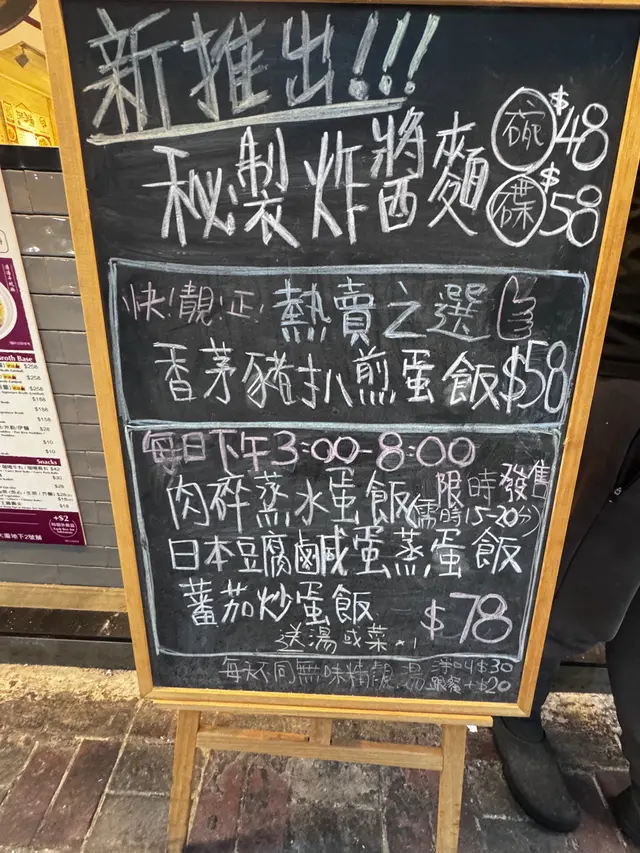 新推出!!!
秘製炸醬麵
碗 $48
碟 $58
快!靚!正!熱賣之選
香茅豬扒煎蛋飯$58
每日下午3:00-8:00
肉碎蒸水蛋飯 限時發售
(需時15-20分)
日本豆腐鹹蛋蒸蛋飯
蕃茄炒蛋飯 $78
送湯或菜x1
每天不同無味精靚湯 淨叫$30
跟餐+$20
roth Base
$258
$258
$168
$10
$10
Snacks
+$2
大廈地下2號舖